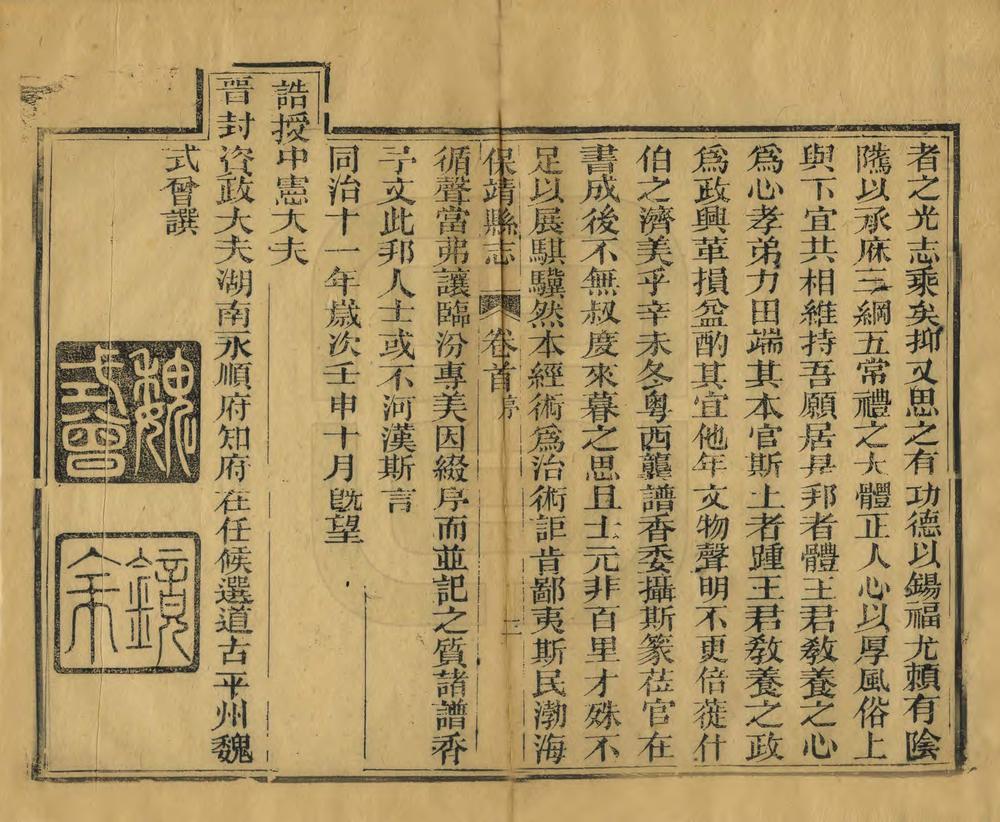 者之光志乘矣抑又思之有功德以錫福尤賴有陰
隲以承庥三綱五常禮之大體正人心以厚風俗上
與下宜共相維持吾願居是邦者體王君敎養之心
爲心孝弟力田端其本官斯土者踵王君敎養之政
爲政興革損益酌其宜他年文物聲明不更倍蓰什
伯之濟美乎辛未冬粵西龔譜香委攝斯篆莅官在
書成後不無叔度來暮之思且士元非百里才殊不
足以展騏驥然本經術爲治術詎肯鄙夷斯民渤海
保靖縣志 卷首 序 三
循聲當弗讓臨汾專美因綴序而並記之質諸譜香
予文此邦人士或不河漢斯言
同治十一年歲次壬申十月旣望
誥授中憲大夫
晉封資政大夫湖南永順府知府在任候選道古平州魏
式曾譔
魏式曾
鏡余